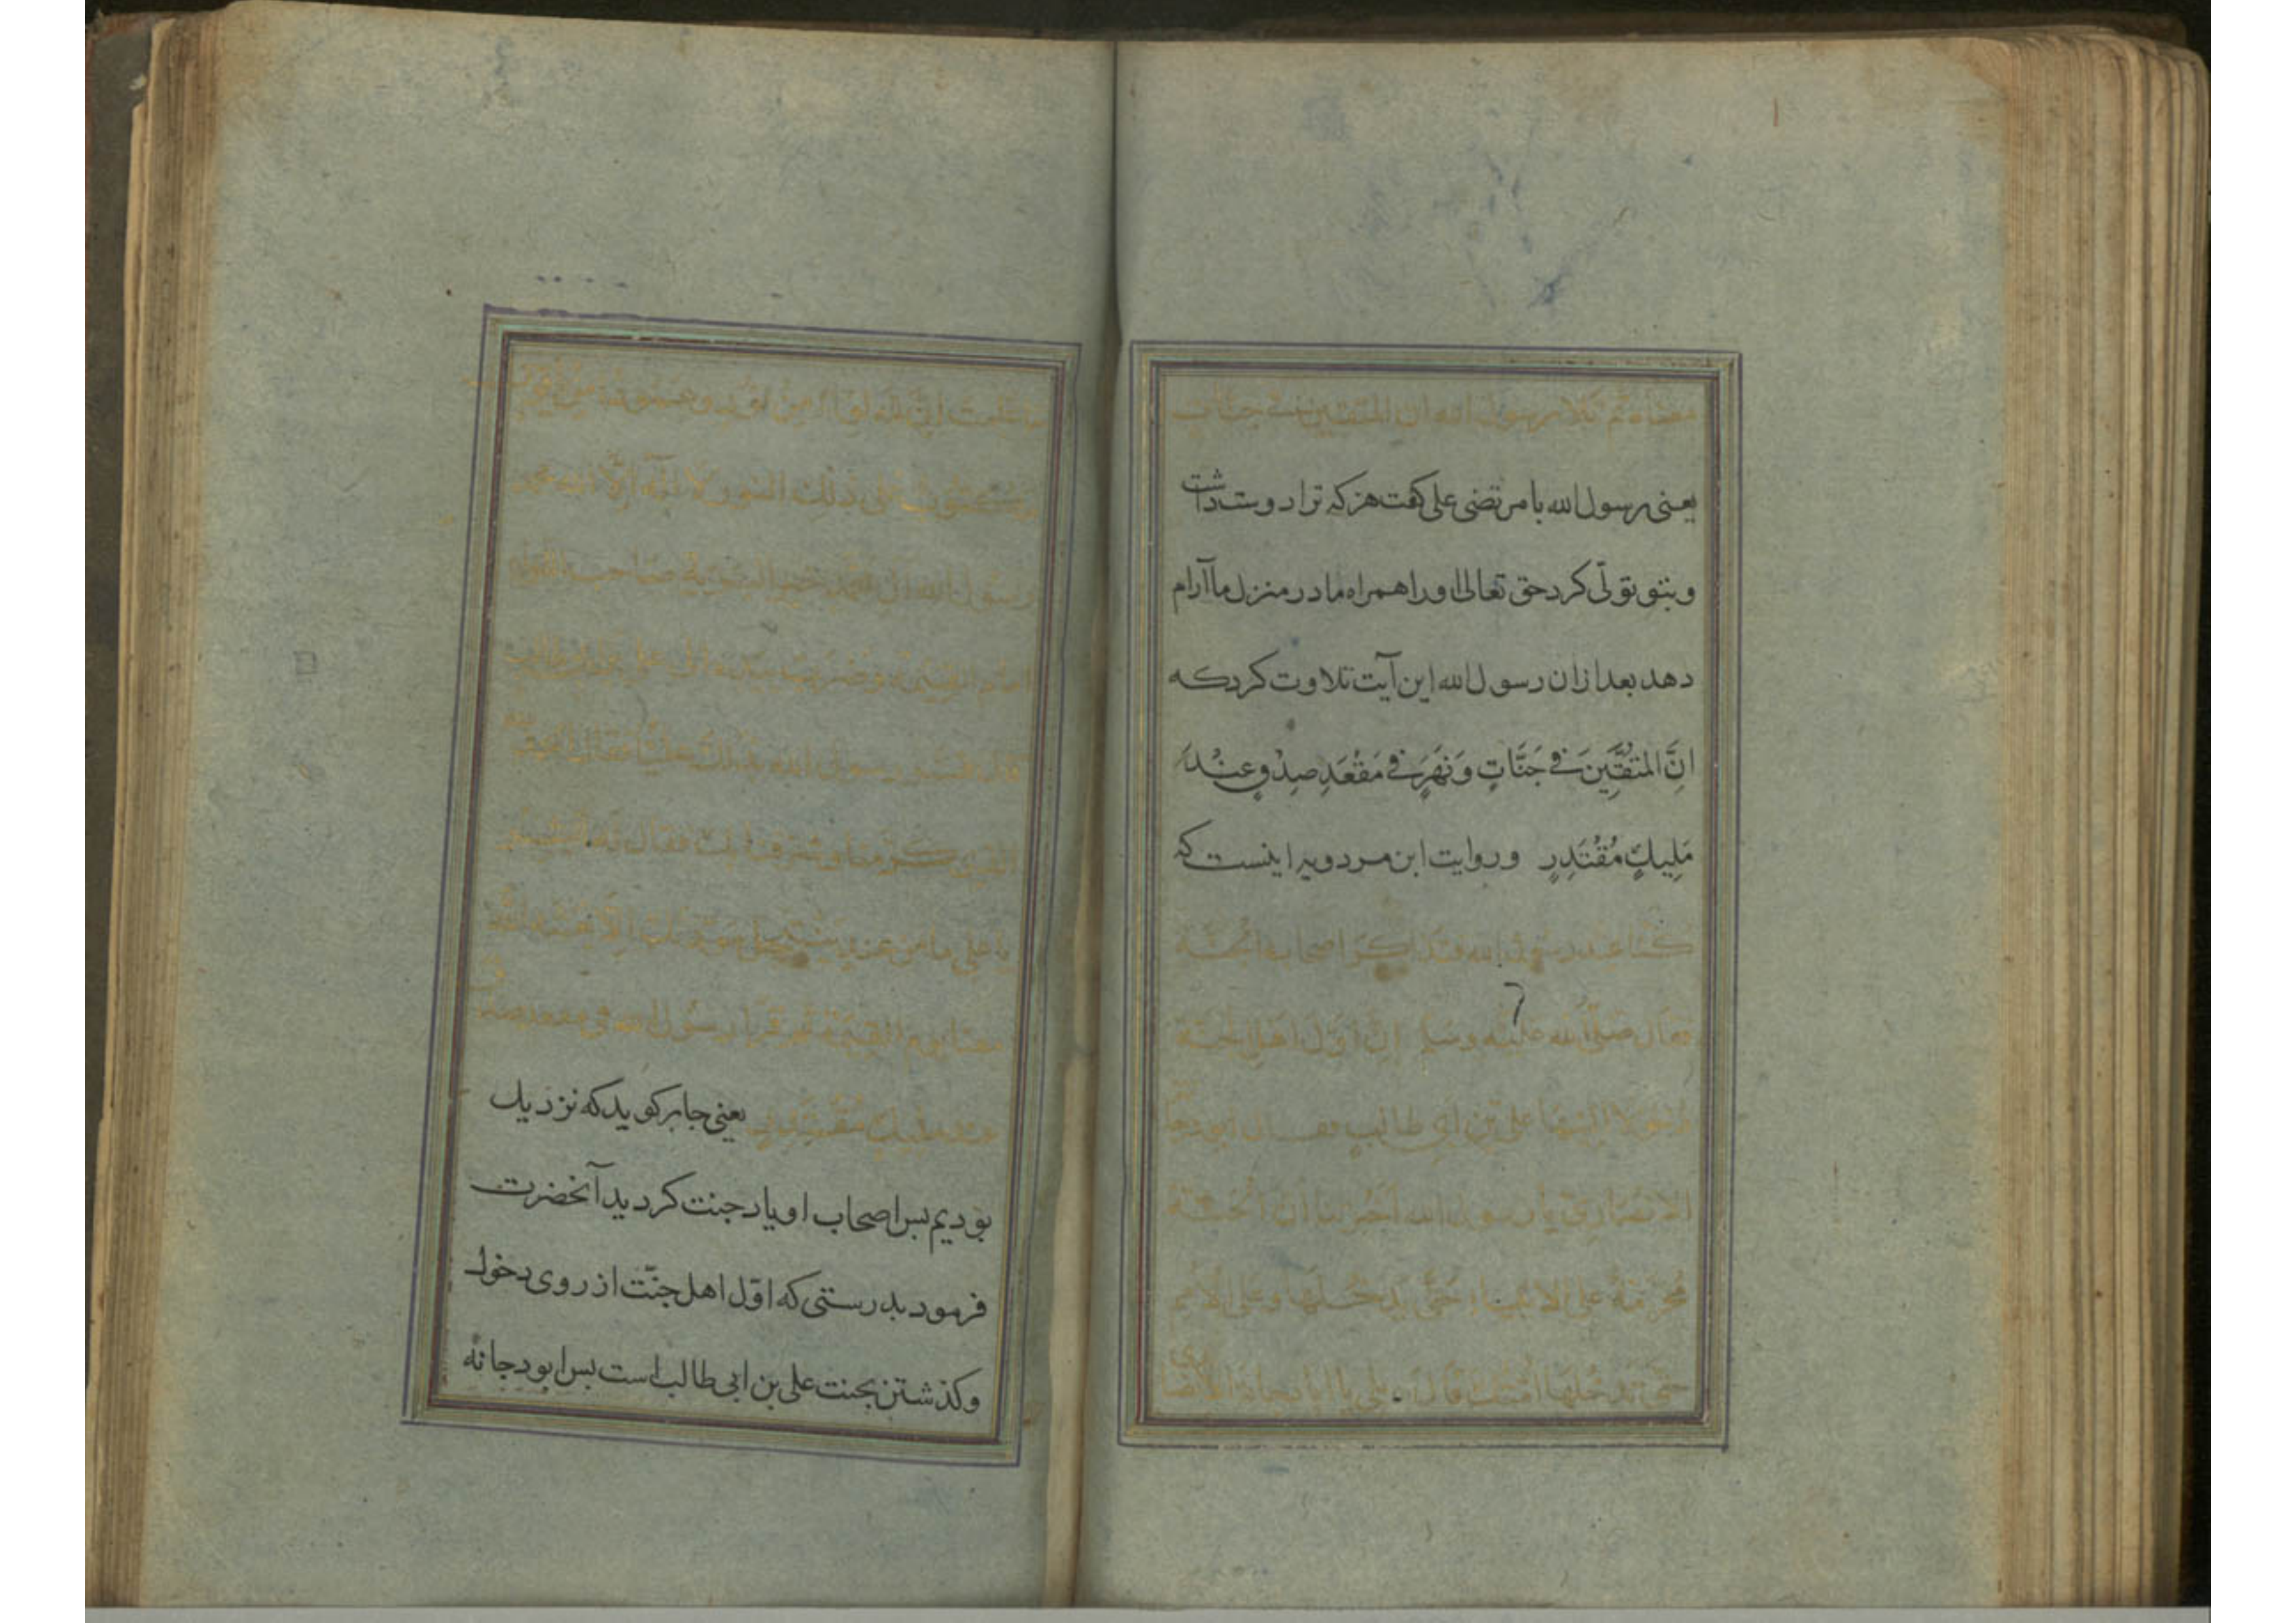 معناه ثم تلا رسول الله ان المتقين في جنات
یعنی رسول الله با مرتضی علی کفت هر که ترا دوست داشت
و بتو تولّی کرد حق تعالی او را همراه ما در منزل ما آرام
دهد بعد ازان رسول الله این آیت تلاوت کرد که
اِنَّ المتقّینَ فی جَنَّاتٍ وَنَهَرٍ فی مَقْعَدِ صِدْقٍ عِنْدَ
مَلِیكٍ مُقْتَدِرٍ و روایت ابن مردویه اینست که
كنا عند رسول الله فتذاكر اصحابه الجنة
فقال صلى الله عليه وسلم ان اول اهل الجنة
دخولا اليها علي بن ابي طالب فقال ابو دجانة
الانصاري يا رسول الله اخبرتنا ان الجنة
محرمة على الانبياء حتى تدخلها وعلى الامم
حتى تدخلها امتك قال بلى يا ابا دجانة اما
علمت ان لله لواء من نور وعمودا من
مكتوب على ذلك النور لا اله الا الله محمد
رسول الله آل محمد خير البرية صاحب اللواء
امام القيمة وضرب بيده الى علي بن ابي طالب
قال فسر رسول الله بذلك عليا فقال الحمد لله
الذي كرمنا وشرفنا بك فقال له ابشر
يا علي ما من عبد ينتحل مودتك الا بعثه الله
معنا يوم القيمة ثم قرأ رسول الله في مقعد صدق
عند مليك مقتدر یعنی جابر کوید که نزدیك
بودیم بس اصحاب او یاد جنت کردید آنحضرت
فرمود بدرستی که اوّل اهل جنّت از روی دخول
و کذشتن بجنت علی بن ابی طالب است بس ابو دجانه